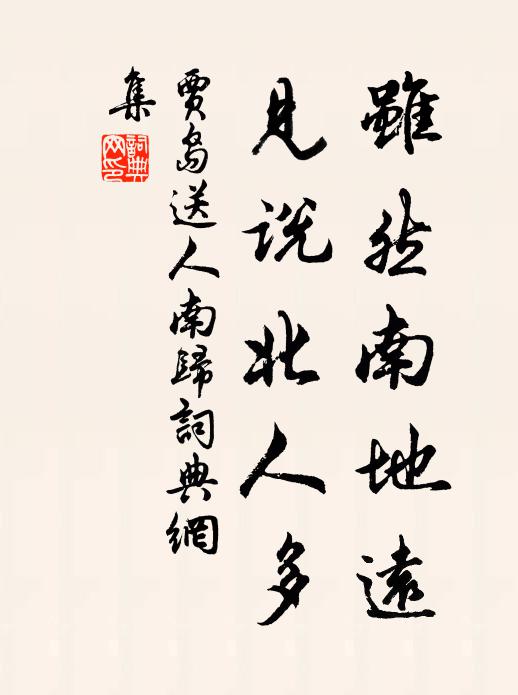 雖然南地遠
見説北人多
賈島送人南歸詞典網
集
詞典
网印